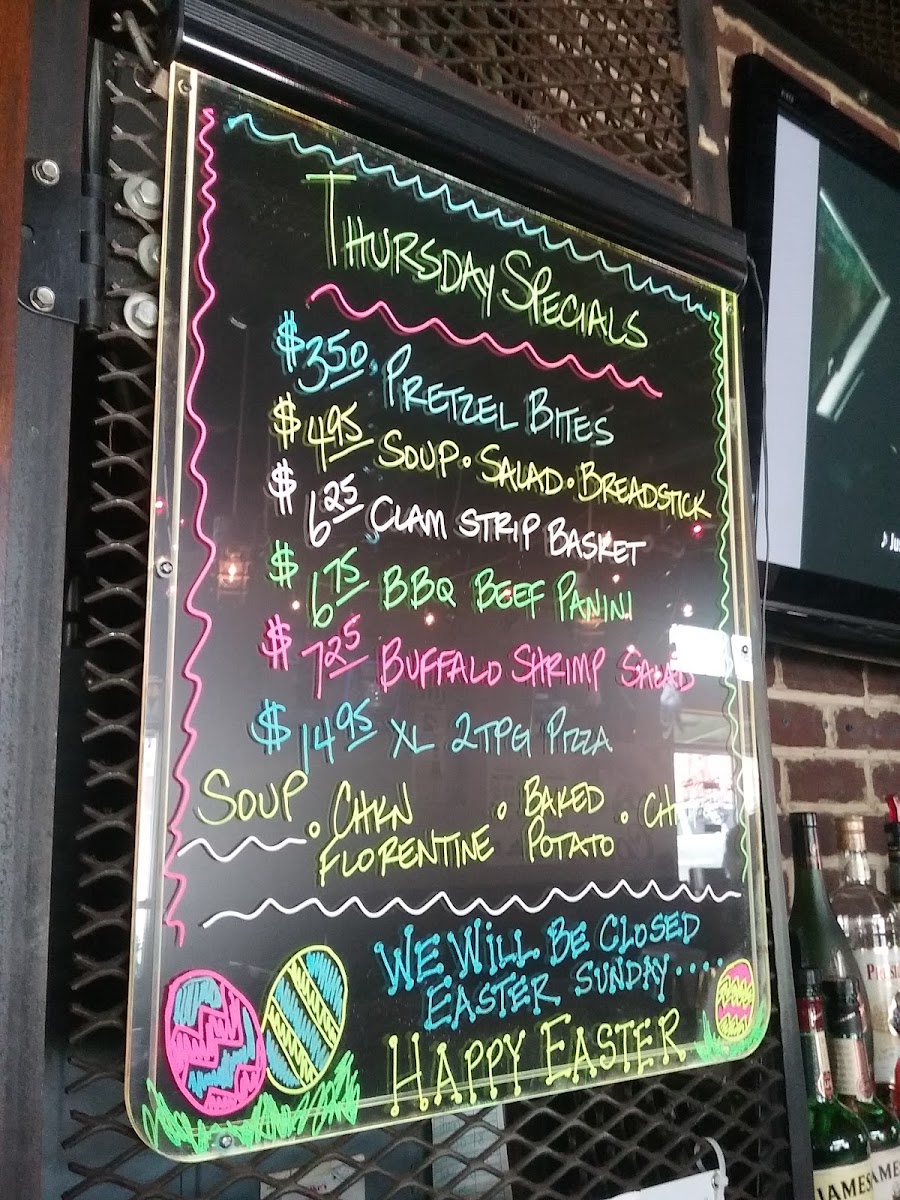 THURSDAY SPECIALS
$3.50 PRETZEL BITES
$4.95 SOUP • SALAD • BREADSTICK
$6.25 CLAM STRIP BASKET
$6.75 BBQ BEEF PANINI
$7.25 BUFFALO SHRIMP SALAD
$14.95 XL 2TPG PIZZA
SOUP • CHKN FLORENTINE • BAKED POTATO •
WE WILL BE CLOSED
EASTER SUNDAY....
HAPPY EASTER